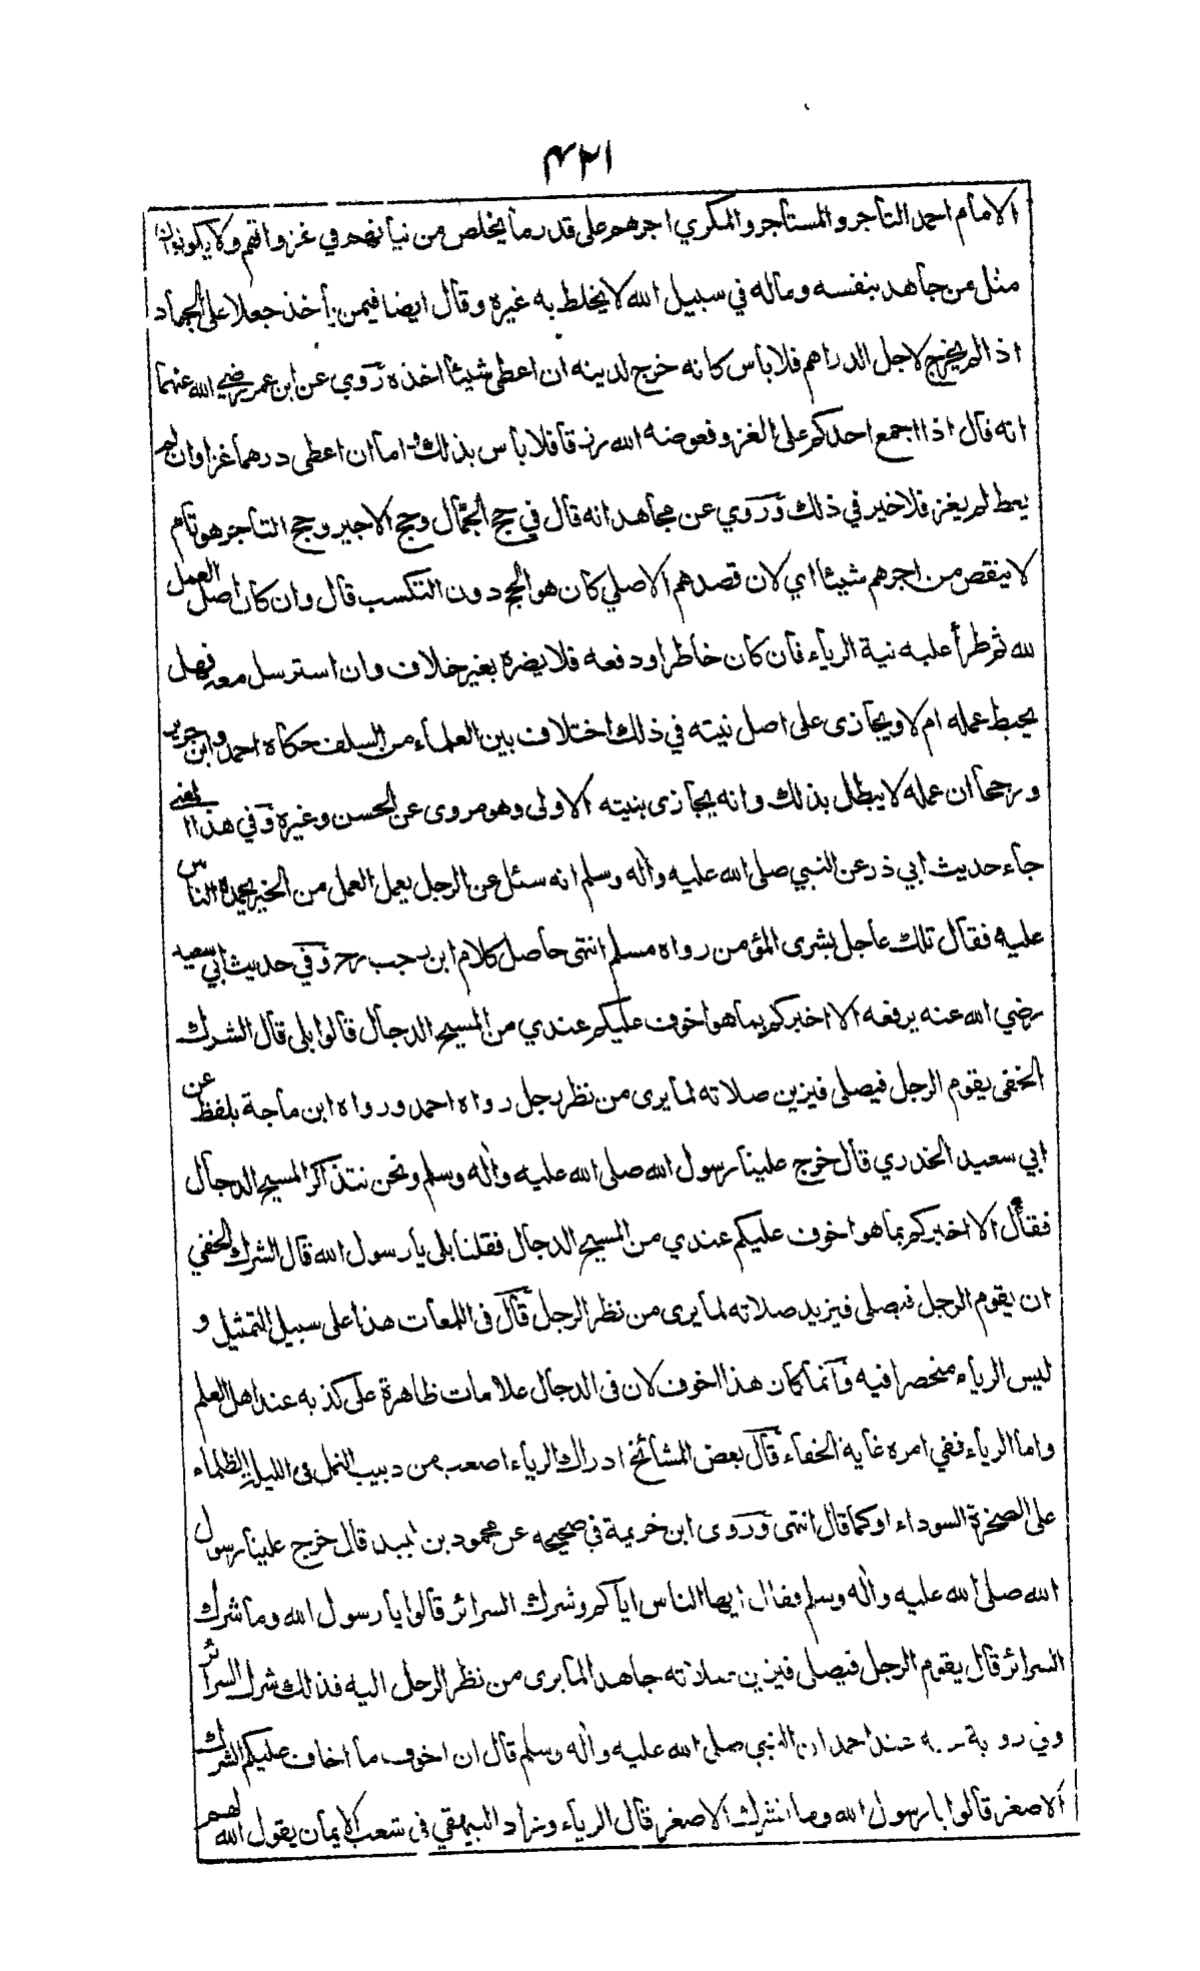 ٤٢١
الامام احمد التاجر والمستأجر والمكري اجرهم على قدر ما يخلص من نياتهم في غزواتهم ولا يكونون
مثل من جاهد بنفسه وماله في سبيل الله لا يخلط به غيره وقال ايضا فيمن يأخذ جعلا على الجهاد
اذا لم يخرج لاجل الدراهم فلا بأس كانه خرج لدينه ان اعطى شيئا اخذه وروي عن ابن عمر رضي الله عنهما
انه قال اذا اجمع احدكم على الغزو فعوضه الله رزقا فلا بأس بذلك واما ان اعطى درهما غزا وان لم
يعط لم يغز فلا خير في ذلك وروي عن مجاهد انه قال في حج الجمّال وحج الاجير وحج التاجر هو تام
لا ينقص من اجرهم شيئا اي لان قصدهم الاصلي كان هو الحج دون التكسب قال وان كان اصل العمل
لله ثم طرأ عليه نية الرياء فان كان خاطرا ودفعه فلا يضره بغير خلاف وان استرسل معه فهل
يحبط عمله ام لا ويجازى على اصل نيته في ذلك اختلاف بين العلماء من السلف حكاه احمد وابن جرير
ورجحا ان عمله لا يبطل بذلك وانه يجازى بنيته الاولى وهو مروى عن الحسن وغيره وفي هذا المعنى
جاء حديث ابي ذر عن النبي صلى الله عليه واٰله وسلم انه سئل عن الرجل يعمل العمل من الخير يحمده الناس
عليه فقال تلك عاجل بشرى المؤمن رواه مسلم انتهى حاصل كلام ابن رجب رح وفي حديث ابي سعيد
رضي الله عنه يرفعه الا اخبركم بما هو اخوف عليكم عندي من المسيح الدجال قالوا بلى قال الشرك
الخفى يقوم الرجل فيصلى فيزين صلاته لما يرى من نظر رجل رواه احمد ورواه ابن ماجة بلفظ عن
ابي سعيد الخدري قال خرج علينا رسول الله صلى الله عليه واٰله وسلم ونحن نتذاكر المسيح الدجال
فقال الا اخبركم بما هو اخوف عليكم عندي من المسيح الدجال فقلنا بلى يا رسول الله قال الشرك الخفي
ان يقوم الرجل فيصلى فيزيد صلاته لما يرى من نظر الرجل قال فى اللمعات هذا على سبيل التمثيل و
ليس الرياء منحصرا فيه وانما كان هذا اخوف لان فى الدجال علامات ظاهرة على كذبه عند اهل العلم
واما الرياء ففي امره غاية الخفاء قال بعض المشائخ ادراك الرياء اصعب من دبيب النمل فى الليلة الظلماء
على الصخرة السوداء او كما قال انتهى وروى ابن خزيمة في صحيحه عن محمود بن لبيد قال خرج علينا رسول
الله صلى الله عليه واٰله وسلم فقال ايها الناس اياكم وشرك السرائر قالوا يا رسول الله وما شرك
السرائر قال يقوم الرجل فيصلى فيزين صلاته جاهدا لما يرى من نظر الرجل اليه فذلك شرك السرائر
وفي رواية عند احمد ان النبي صلى الله عليه واٰله وسلم قال ان اخوف ما اخاف عليكم الشرك
الاصغر قالوا يا رسول الله وما الشرك الاصغر قال الرياء وزاد البيهقي فى شعب الايمان يقول الله لهم